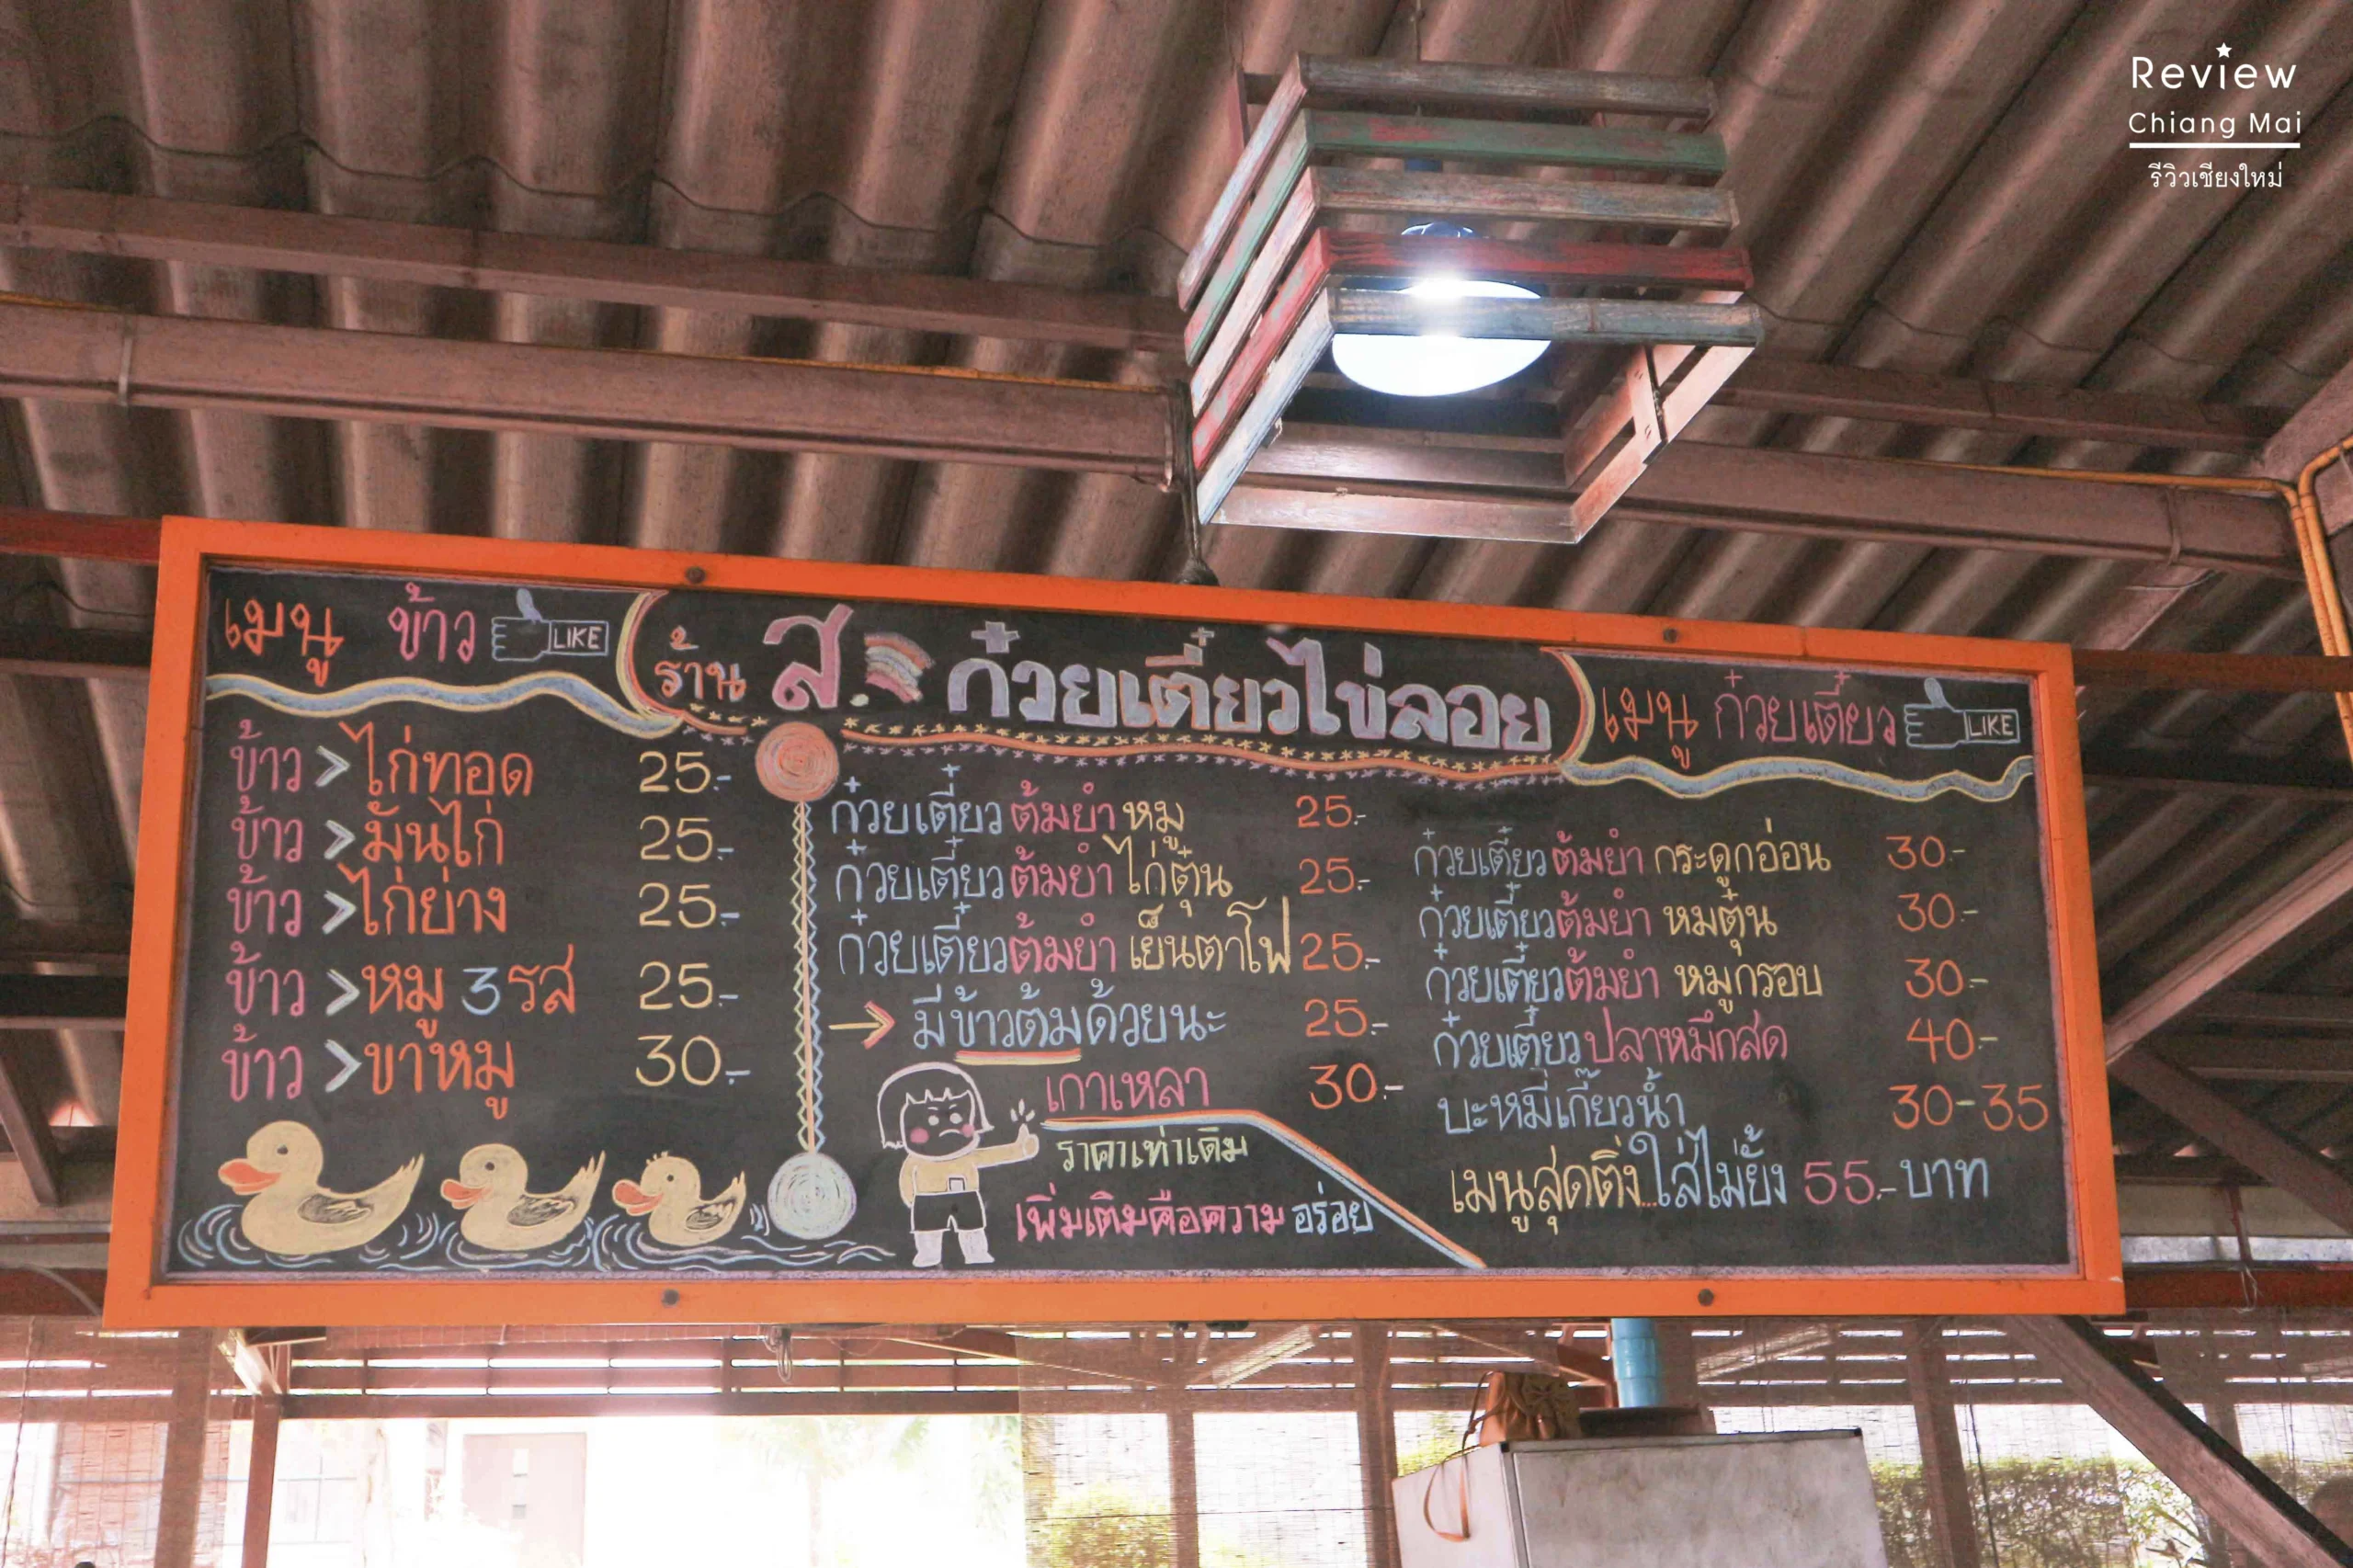 Review
Chiang Mai
รีวิวเชียงใหม่
เมนู ข้าว LIKE
ข้าว > ไก่ทอด 25.-
ข้าว > มันไก่ 25.-
ข้าว > ไก่ย่าง 25.-
ข้าว > หมู 3 รส 25.-
ข้าว > ขาหมู 30.-
ร้าน ส. ก๋วยเตี๋ยวไข่ลอย
ก๋วยเตี๋ยวต้มยำหมู 25.-
ก๋วยเตี๋ยวต้มยำไก่ตุ๋น 25.-
ก๋วยเตี๋ยวต้มยำ เย็นตาโฟ 25.-
มีข้าวต้มด้วยนะ 25.-
เกาเหลา 30.-
ราคาเท่าเดิม
เพิ่มเติมคือความ อร่อย
เมนู ก๋วยเตี๋ยว LIKE
ก๋วยเตี๋ยวต้มยำ กระดูกอ่อน 30.-
ก๋วยเตี๋ยวต้มยำ หมตุ๋น 30.-
ก๋วยเตี๋ยวต้มยำ หมูกรอบ 30.-
ก๋วยเตี๋ยวปลาหมึกสด 40.-
บะหมี่เกี๊ยวน้ำ 30-35
เมนูสุดติ่ง...ใส่ไม่ยั้ง 55.- บาท